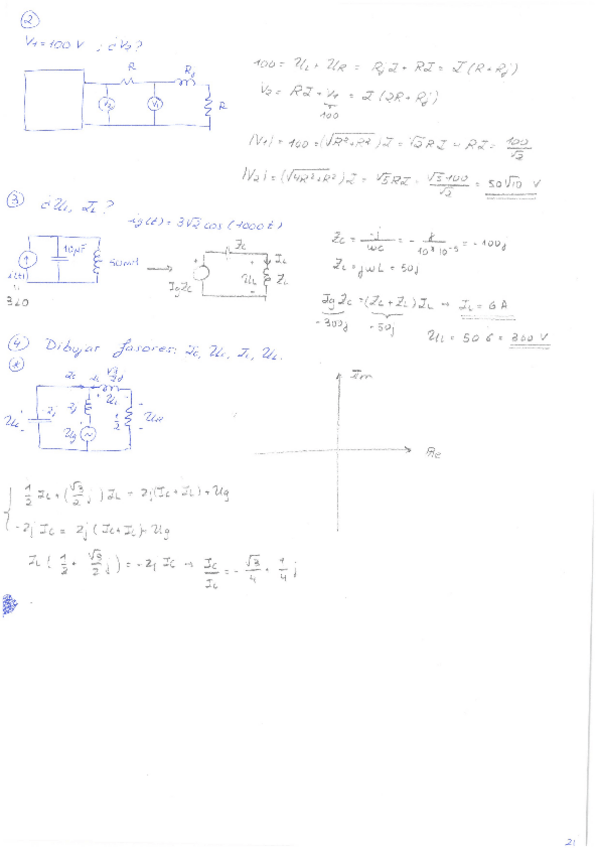 ②
V₁ = 100 V ; ¿V₂?
R
Rj
R
V₂
V₁
100 = UL + UR = RjI + RI = I(R+Rj)
V₂ = RI + V₁ = I(2R+Rj)
100
|V₁| = 100 = (√R²+R²) I = √2 RI → RI = 100/√2
|V₂| = (√4R²+R²) I = √5 RI = √5·100/√2 = 50√10 V
③ ¿UL, IL?
ig(t) = 3√2 cos(1000t)
10μF
50mH
3∠0
Zc
IL
UL
ZL
IgZc
Zc = -j/ωc = - j/10³·10⁻⁵ = -100j
ZL = jωL = 50j
IgZc = (Zc + ZL) IL → IL = 6 A
-300j
-50j
UL = 50·6 = 300 V
④ Dibujar fasores: Ic, Uc, IL, UL.
Ic
IL
√3/2 j
-2j
2j
UL
1/2
UR
Uc
Ug
Im
Re
1/2 IL + (√3/2 j) IL = 2j(Ic+IL) + Ug
-2j Ic = 2j(Ic+IL) + Ug
IL (1/2 + √3/2 j) = -2j Ic → Ic/IL = - √3/4 + 1/4 j
21